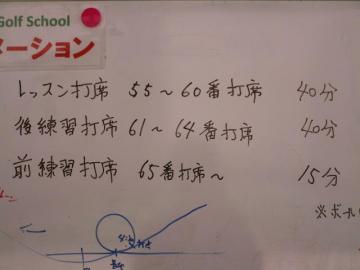 Golf School
メーション
レッスン打席 55〜60番打席 40分
後練習打席 61〜64番打席 40分
前練習打席 65番打席〜 15分
※ボール